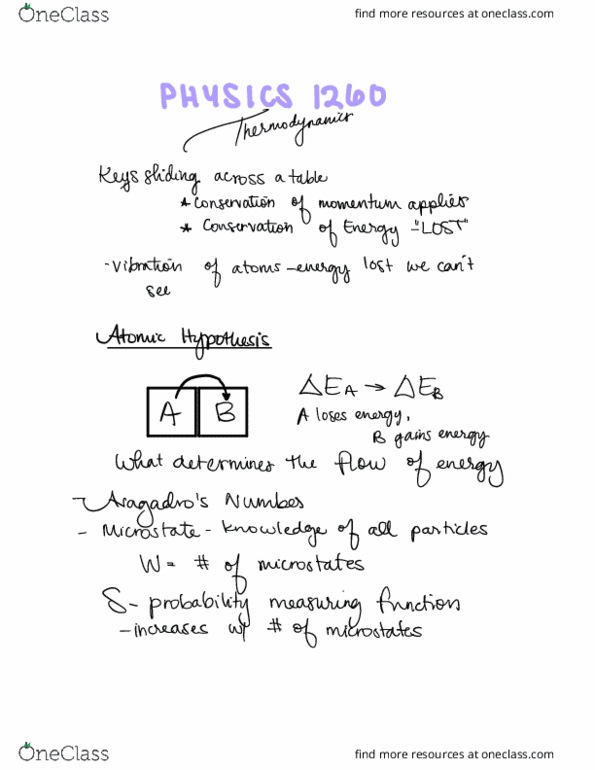 OneClass
find more resources at oneclass.com
PHYSICS 1260
Thermodynamics
Keys sliding across a table
* conservation of momentum applies
* conservation of Energy - "LOST"
- vibration of atoms - energy lost we can't
see
Atomic Hypothesis
A B
ΔEA → ΔEB
A loses energy,
B gains energy
What determines the flow of energy
- Avagadro's Number
- Microstate - knowledge of all particles
W = # of microstates
S - probability measuring function
- increases w/ # of microstates
OneClass
find more resources at oneclass.com